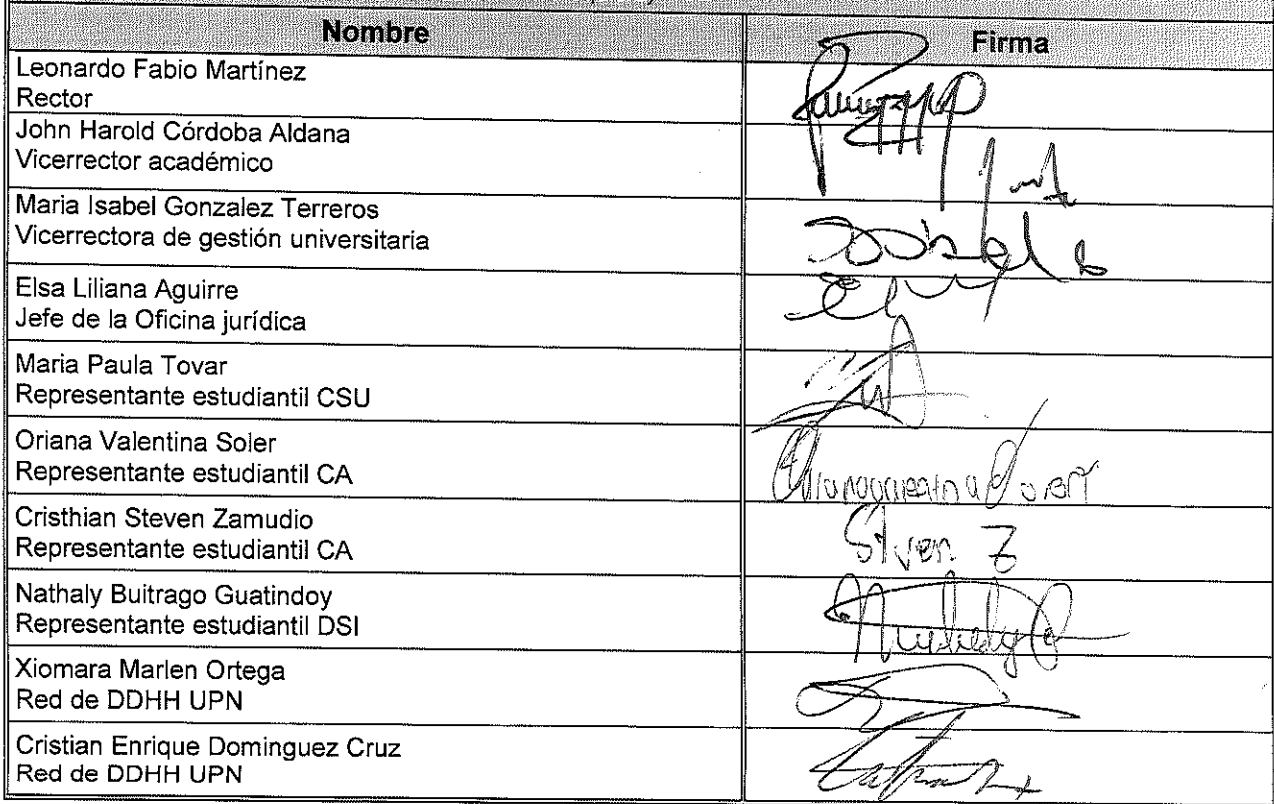 Nombre
Firma
Leonardo Fabio Martínez
Rector
John Harold Córdoba Aldana
Vicerrector académico
Maria Isabel Gonzalez Terreros
Vicerrectora de gestión universitaria
Elsa Liliana Aguirre
Jefe de la Oficina jurídica
Maria Paula Tovar
Representante estudiantil CSU
Oriana Valentina Soler
Representante estudiantil CA
Cristhian Steven Zamudio
Representante estudiantil CA
Stven Z
Nathaly Buitrago Guatindoy
Representante estudiantil DSI
Xiomara Marlen Ortega
Red de DDHH UPN
Cristian Enrique Dominguez Cruz
Red de DDHH UPN